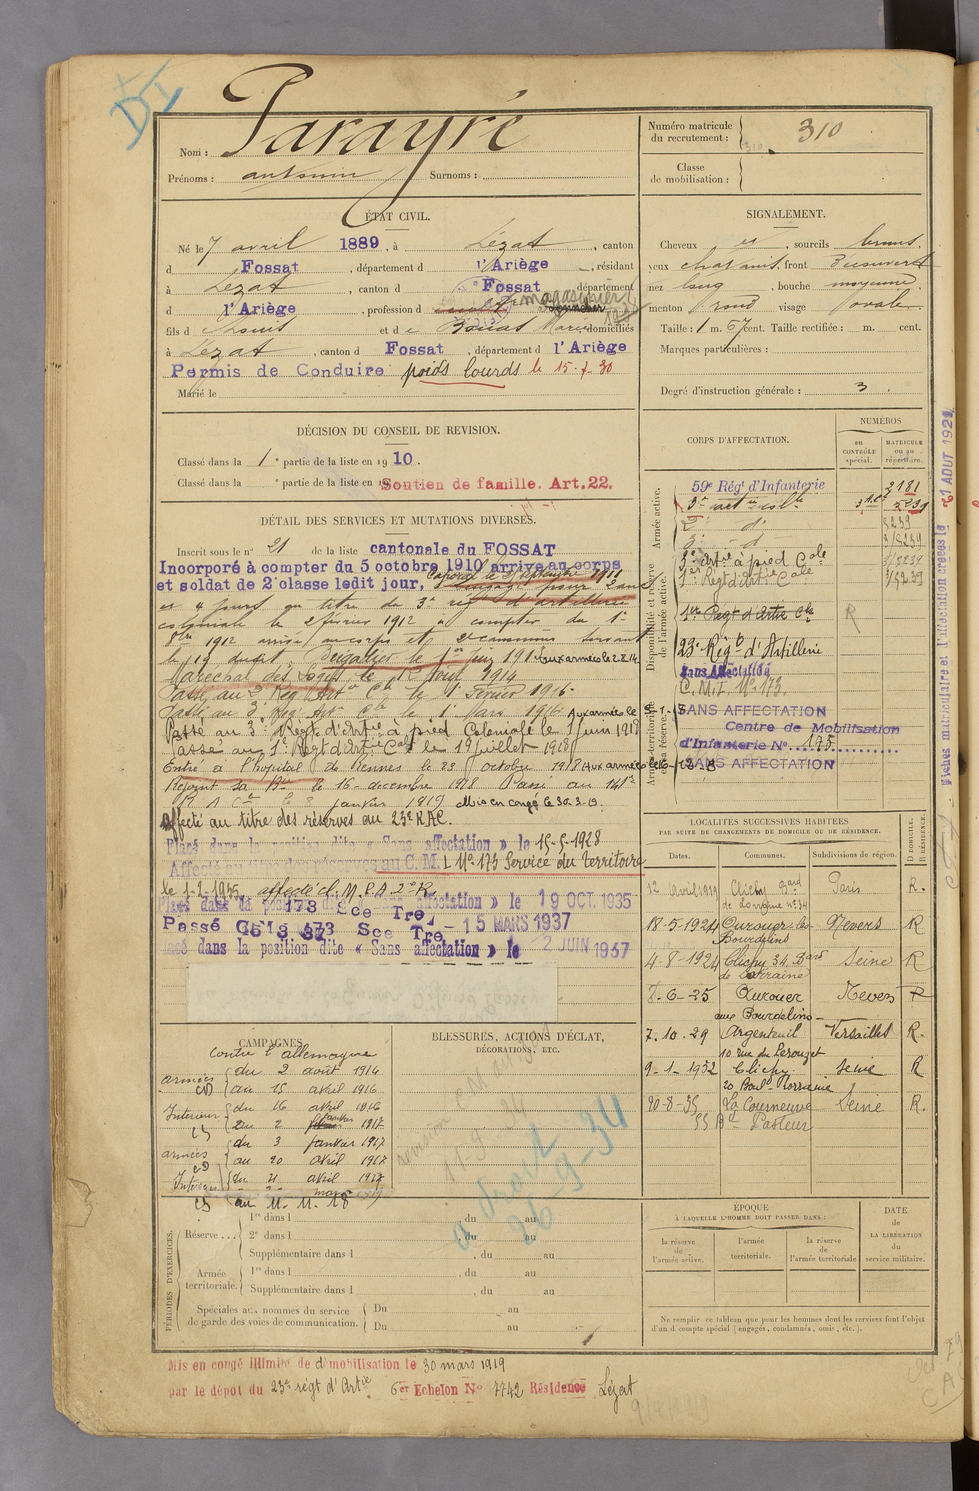 Nom : Parayré
Prénoms : Antonin Surnoms :
Numéro matricule du recrutement : 310
Classe de mobilisation :
ÉTAT CIVIL.
Né le 7 avril 1889, à Lézat, canton
d Fossat, département d l'Ariège, résidant
à Lézat, canton d Fossat, département
d l'Ariège, profession d magasinier
fils d Louis et de Marie domiciliés
à Lézat, canton d Fossat, département d l'Ariège
Permis de Conduire poids lourds le 15-7-30
Marié le
SIGNALEMENT.
Cheveux et, sourcils bruns,
yeux chatains, front Découvert
nez long, bouche moyenne,
menton rond visage ovale
Taille : 1 m. 67 cent. Taille rectifiée : m. cent.
Marques particulières :
Degré d'instruction générale : 3.
DÉCISION DU CONSEIL DE REVISION.
Classé dans la 1e partie de la liste en 1910.
Classé dans la e partie de la liste en 19 Soutien de famille. Art. 22.
DÉTAIL DES SERVICES ET MUTATIONS DIVERSES.
Inscrit sous le n° 21 de la liste cantonale du FOSSAT
Incorporé à compter du 5 octobre 1910 arrive au corps
et soldat de 2e classe ledit jour,
Caporal le 25 septembre 1911
et 4 jours au titre du 3e rég d'artillerie
coloniale le 2 février 1912 à compter du 1er
8bre 1912 arrivé au corps et 2e canonnier servant
le 19 dudit, Brigadier le 1er Juin 191 aux armées le 2.8.14.
Maréchal des Logis le 1er Août 1914
Passé au 2e Rég. Artie Cle le 1 Février 1916
Passé au 3e Rég. Art. Cle le 1 Mars 1916 Aux armées le
Passé au 3e Régt d'Artie à pied Coloniale le 1 juin 1918
Passé au 1er Régt d'Artie Cale le 19 juillet 1918
Entré à l'hopital de Rennes le 23 octobre 1918
Rejoint sa Bie le 16 decembre 1918 Passé au 141e
R A Cle le 3 janvier 1919 Mis en congé le 30.3.19.
Affecté au titre des réserves au 23e RAC.
Placé dans la position dite « Sans affectation » le 15-5-1928
Affecté au titre des réserves au C. M. I. N° 173 Service du Territoire
le 1-1-1935 affecté
Placé dans la position dite « Sans affectation » le 19 OCT. 1935
Passé CMI 173 Sce Tre - 15 MARS 1937
Placé dans la position dite « Sans affectation » le 2 JUIN 1937
CORPS D'AFFECTATION.
NUMÉROS
au CONTRÔLE spécial.
MATRICULE ou au répertoire.
Armée active.
59e Régt d'Infanterie 2181
3e
2e d°
3e d°
Disponibilité et réserve de l'armée active.
3e Artie à pied Cole
1er Regt d'Artie Cale
1er Regt d'Artie Cle R
23e Régt d'Artillerie
Sans Affectation
C.M.I. N° 173.
Armée territoriale et sa réserve.
SANS AFFECTATION
Centre de Mobilisation
d'Infanterie N° 173
SANS AFFECTATION
Fiches matriculaire et d'affectation créées le 27 AOUT 1929
LOCALITÉS SUCCESSIVES HABITÉES
PAR SUITE DE CHANGEMENTS DE DOMICILE OU DE RÉSIDENCE.
Dates. Communes. Subdivisions de région. D DOMICILE. R RÉSIDENCE.
12 avril 1919 Clichy Bard de Lorraine n° 34 Paris R.
18-5-1924 Ourouer les Bourdelins Nevers R
4-8-1924 Clichy 34, Bard de Lorraine Seine R
8-6-25 Ourouer aux Bourdelins Nevers R
7.10.29 Argenteuil 10 rue du Versailles R.
9-1-1932 Clichy 20 Boul. Lorraine Seine R
20-8-35 La Courneuve 55 Bd Pasteur Seine R.
CAMPAGNES
Contre l'allemagne
armées CD du 2 août 1914
au 15 avril 1916
Intérieur CS du 16 avril 1916
au 2 janvier 1917
armées CD du 3 janvier 1917
au 20 avril 1917
Intérieur CS du 21 avril 1917
au 11. 11. 18
BLESSURES, ACTIONS D'ÉCLAT,
DÉCORATIONS, ETC.
a droit
26-9-34
PÉRIODES D'EXERCICES.
Réserve . . . 1re dans l , du au
2e dans l , du au
Supplémentaire dans l , du au
Armée territoriale. 1re dans l , du au
Supplémentaire dans l , du au
Spéciales aux hommes du service de garde des voies de communication. Du au
Du au
ÉPOQUE
À LAQUELLE L'HOMME DOIT PASSER DANS :
la réserve de l'armée active.
l'armée territoriale.
la réserve de l'armée territoriale
DATE de LA LIBÉRATION du service militaire.
Ne remplir ce tableau que pour les hommes dont les services font l'objet
d'un compte spécial (engagés, condamnés, omis, etc.).
Mis en congé illimité de démobilisation le 30 mars 1919
par le dépôt du 23e régt d'Artie 6er Echelon No 7742 Résidence Lézat